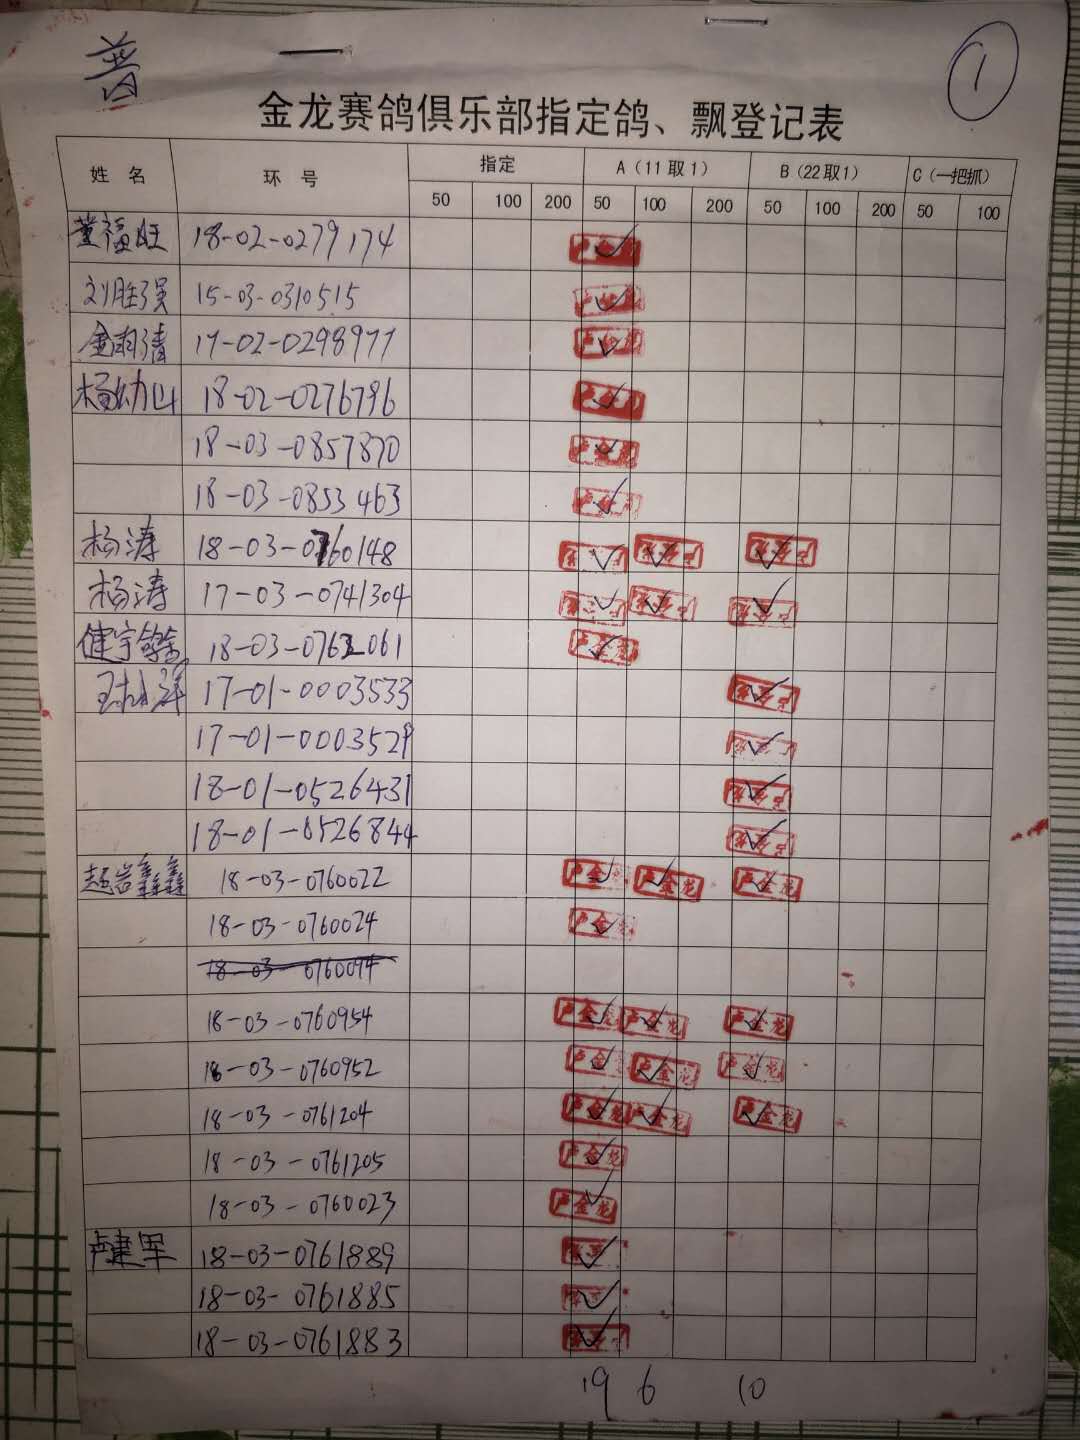 普
1
金龙赛鸽俱乐部指定鸽、飘登记表
姓 名 环 号 指定 A（11取1） B（22取1） C（一把抓）
50 100 200 50 100 200 50 100 200 50 100
董福旺 18-02-0279174 ✓
刘胜强 15-03-0310515 ✓
金雨清 17-02-0298977 ✓
杨幼山 18-02-0276796 ✓
18-03-0857870 ✓
18-03-0853463 ✓
杨涛 18-03-0760148 ✓ ✓ ✓
杨涛 17-03-0741304 ✓ ✓ ✓
健宇鸽舍 18-03-0762061 ✓
17-01-0003533 ✓
17-01-0003529 ✓
18-01-0526431 ✓
18-01-0526844 ✓
赵岩鑫鑫 18-03-0760022 卢金龙 ✓ 卢金龙 ✓ 卢金龙 ✓
18-03-0760024 卢金龙 ✓
18-03-0760094
18-03-0760954 卢金龙 ✓ 卢金龙 ✓ 卢金龙 ✓
18-03-0760952 卢金龙 ✓ 卢金龙 ✓ 卢金龙 ✓
18-03-0761204 卢金龙 ✓ 卢金龙 ✓ 卢金龙 ✓
18-03-0761205 卢金龙 ✓
18-03-0760023 卢金龙 ✓
卢建军 18-03-0761889 ✓
18-03-0761885 ✓
18-03-0761883 ✓
19 6 10